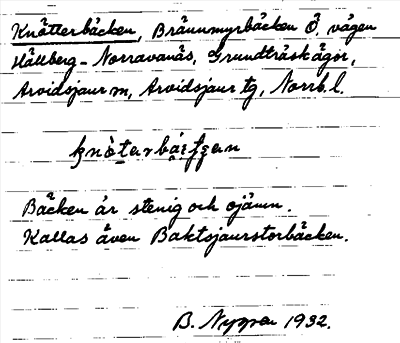 Knätterbäcken, Brännmyrbäcken Ö. vägen
Hällberg - Norravanäs, Grundträskågor,
Arvidsjaur m, Arvidsjaur tg, Norrb. l.
Bäcken är stenig och ojämn.
Kallas även Baktsjaurstorbäcken.
B. Nygren 1932.